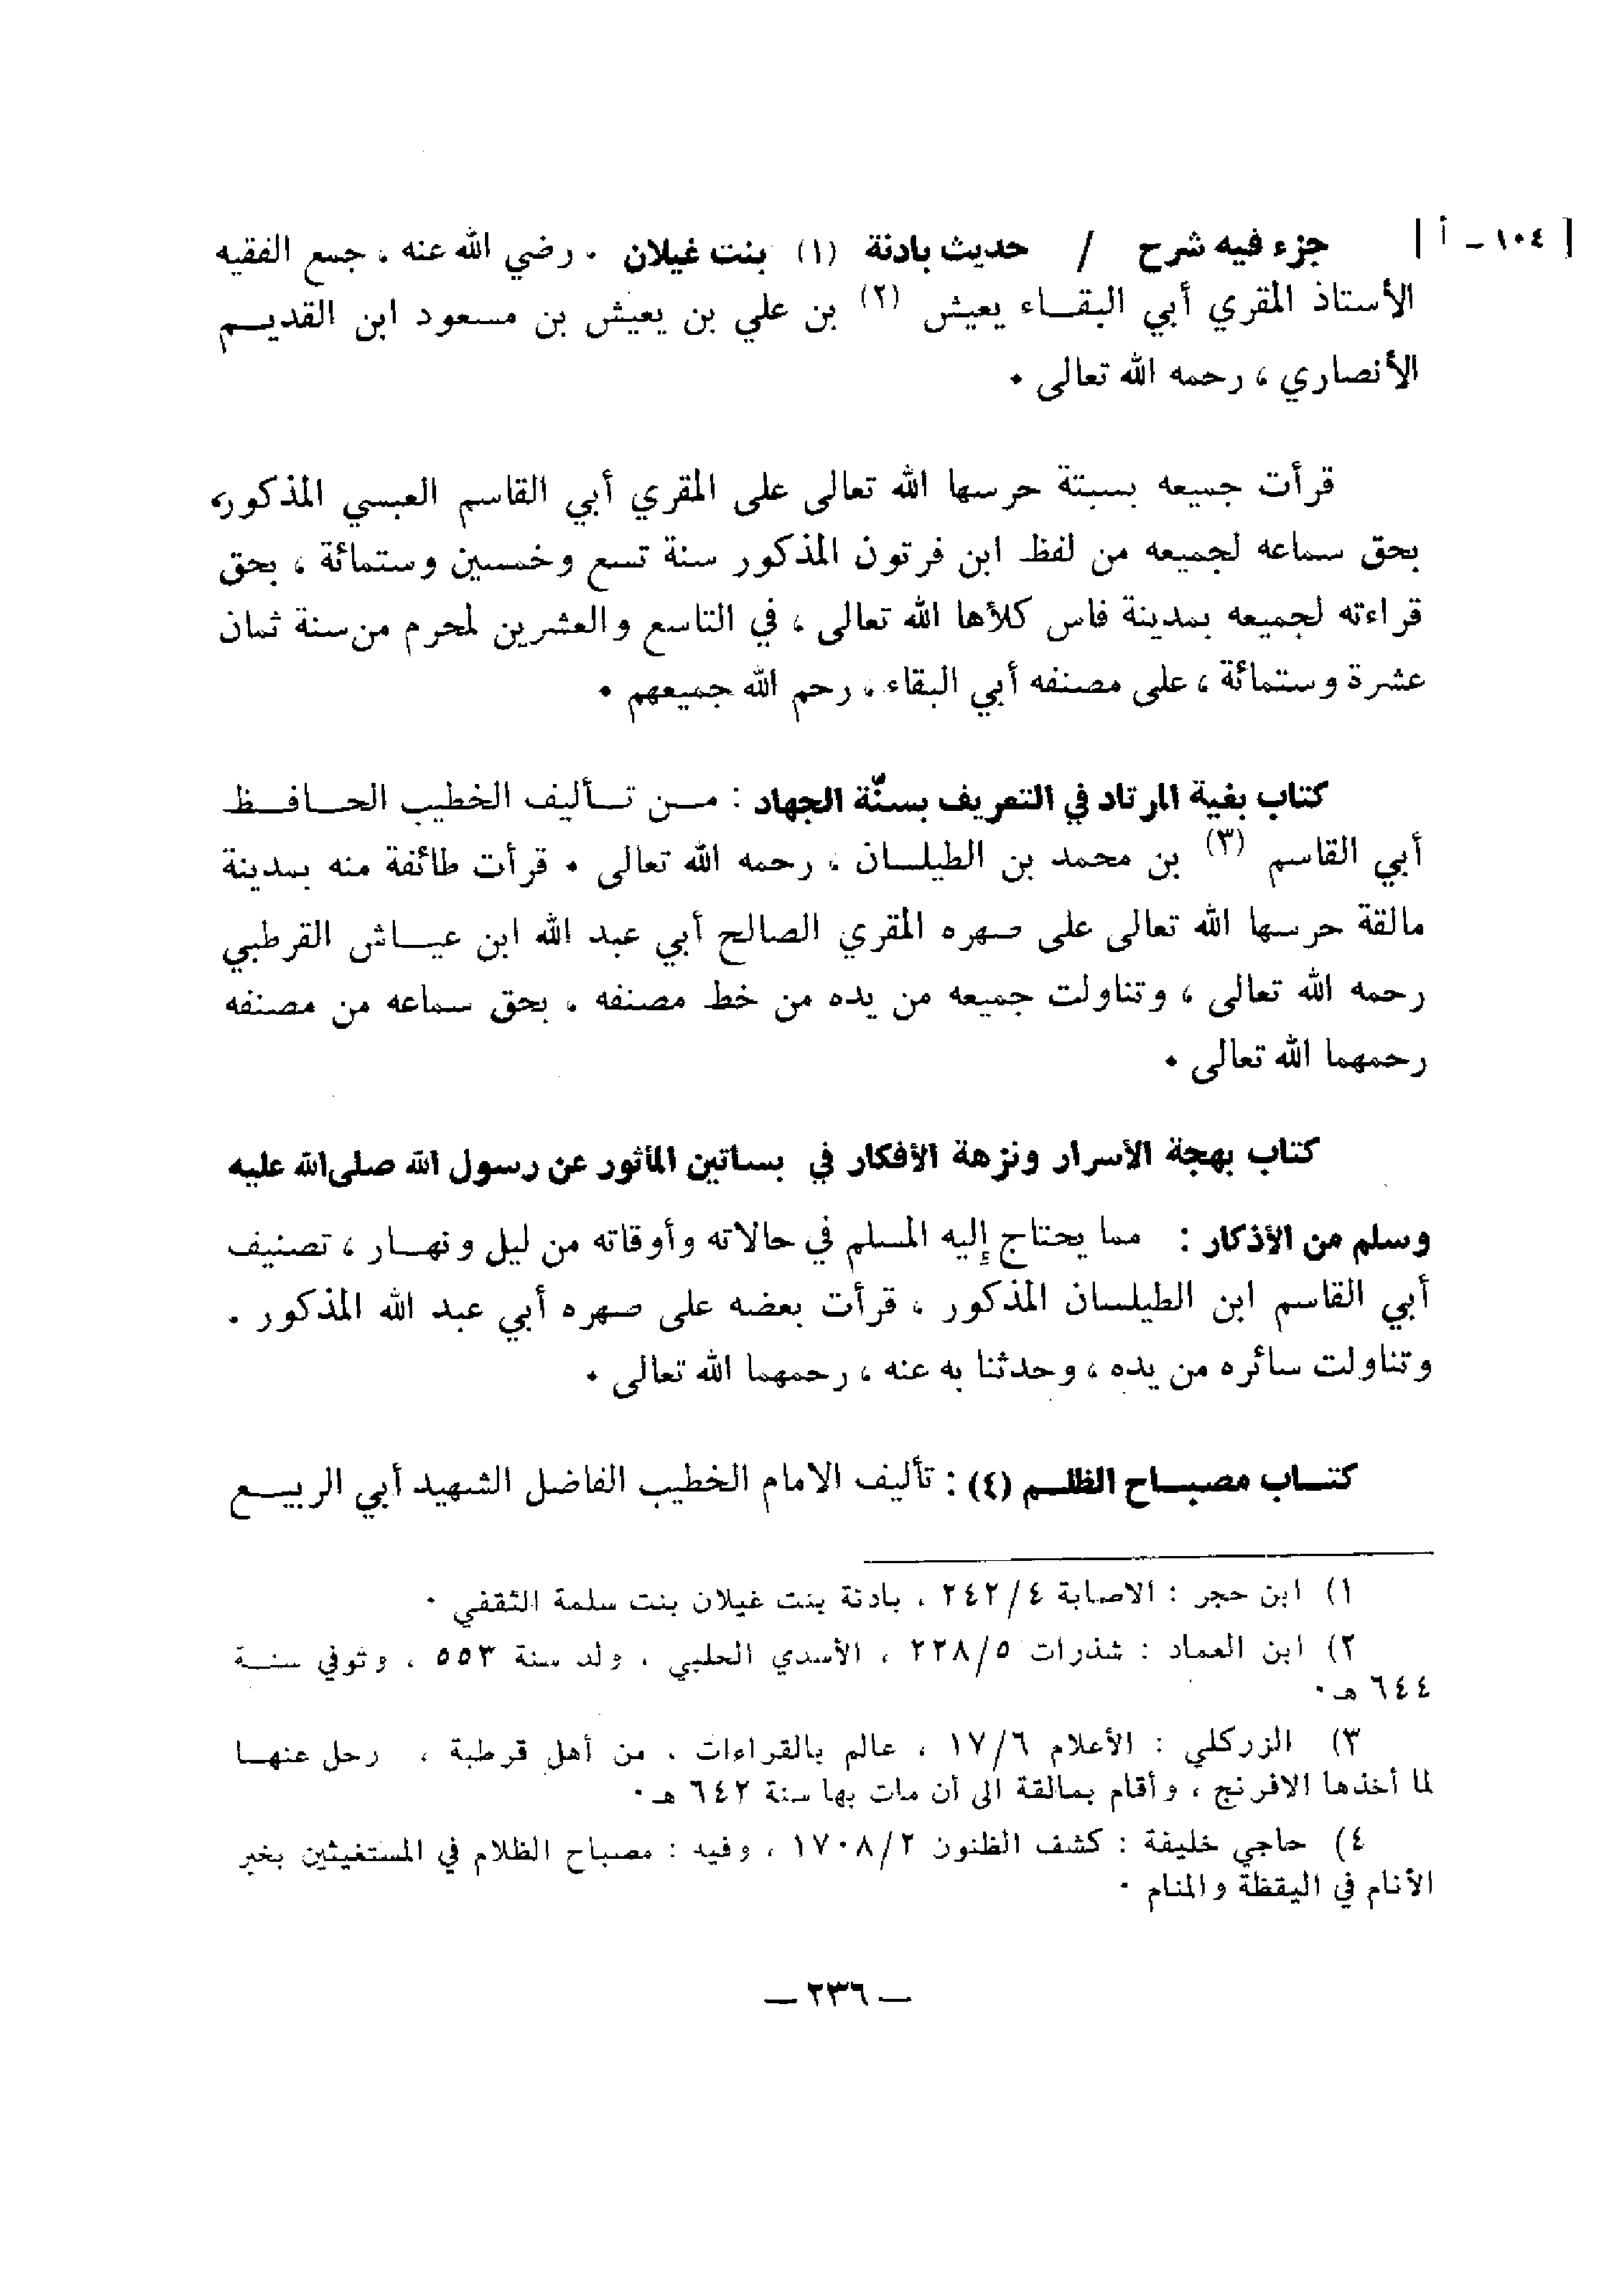 [ ١٠٤ - أ ] جزء فيه شرح / حديث بادنة (١) بنت غيلان ٠ رضي الله عنه ، جمع الفقيه
الأستاذ المقري أبي البقــاء يعيش (٢) بن علي بن يعيش بن مسعود ابن القديــم
الأنصاري ، رحمه الله تعالى ٠
قرأت جميعه بسبتة حرسها الله تعالى على المقري أبي القاسم العبسي المذكور،
بحق سماعه لجميعه من لفظ ابن فرتون المذكور سنة تسع وخمسين وستمائة ، بحق
قراءته لجميعه بمدينة فاس كلأها الله تعالى ، في التاسع والعشرين لمحرم من سنة ثمان
عشرة وستمائة ، على مصنفه أبي البقاء ، رحم الله جميعهم ٠
كتاب بغية المرتاد في التعريف بسنّة الجهاد : مــن تــأليف الخطيب الحــافــظ
أبي القاسم (٣) بن محمد بن الطيلســان ، رحمه الله تعالى ٠ قرأت طائفة منه بمدينة
مالقة حرسها الله تعالى على صهره المقري الصالح أبي عبد الله ابن عيــاش القرطبي
رحمه الله تعالى ، وتناولت جميعه من يده من خط مصنفه ، بحق سماعه من مصنفه
رحمهما الله تعالى ٠
كتاب بهجة الأسرار ونزهة الأفكار في بساتين المأثور عن رسول الله صلى الله عليه
وسلم من الأذكار : مما يحتاج إليه المسلم في حالاته وأوقاته من ليل ونهــار ، تصنيف
أبي القاسم ابن الطيلسان المذكور ، قرأت بعضه على صهره أبي عبد الله المذكور .
وتناولت سائره من يده ، وحدثنا به عنه ، رحمهما الله تعالى ٠
كتــاب مصبــاح الظلــم (٤) : تأليف الامام الخطيب الفاضل الشهيد أبي الربيــع
١) ابن حجر : الاصابة ٢٤٢/٤ ، بادنة بنت غيلان بنت سلمة الثقفي ٠
٢) ابن العماد : شذرات ٢٢٨/٥ ، الأسدي الحلبي ، ولد سنة ٥٥٣ ، وتوفي سنــة
٦٤٤ هـ ٠
٣) الزركلي : الأعلام ١٧/٦ ، عالم بالقراءات ، من أهل قرطبة ، رحل عنهــا
لما أخذها الافرنج ، وأقام بمالقة الى أن مات بها سنة ٦٤٢ هـ ٠
٤) حاجي خليفة : كشف الظنون ١٧٠٨/٢ ، وفيه : مصباح الظلام في المستغيثين بخير
الأنام في اليقظة والمنام ٠
— ٢٣٦ —